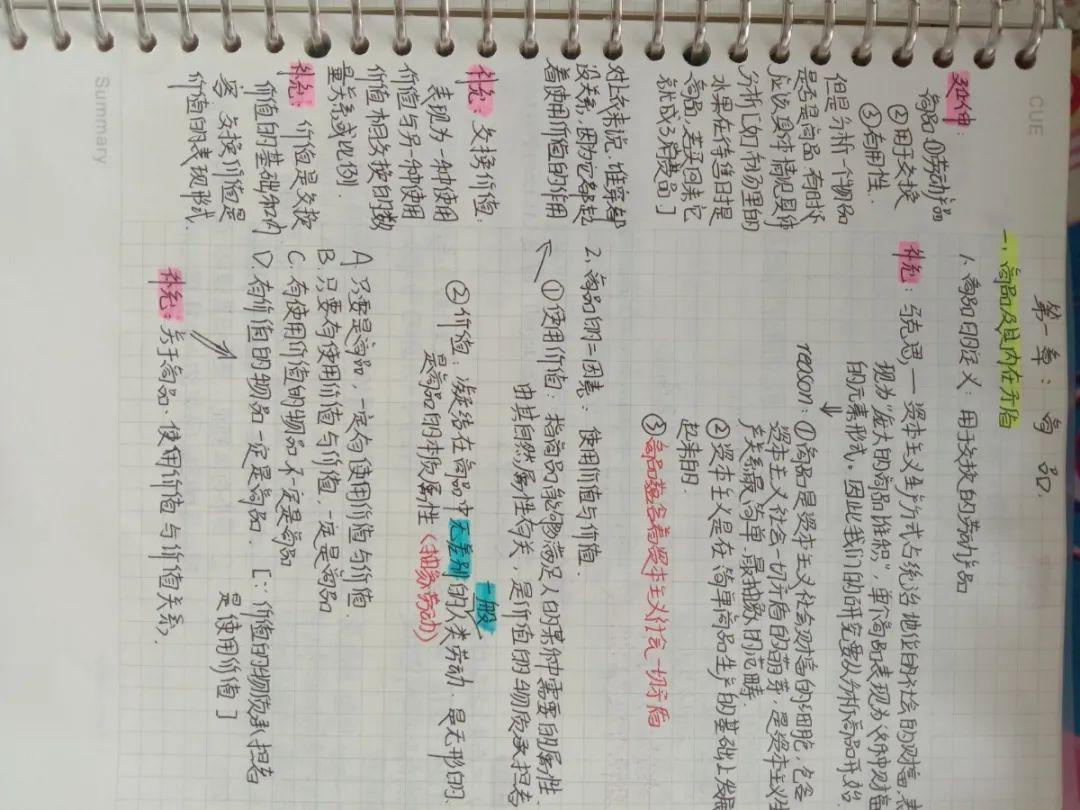 CUE
延伸:
商品①劳动产品
②用于交换
③有用性.
但是分析一个物品
是否是商品,有时
应该具体情况具体
分析[如杨历里的
水果在传送时是
商品,卖还回来记
就成了消费品]
对此来说,谁穿都
没关系,因为它都起
着使用价值的作用
补充:交换价值:
表现为一种使用
价值与另一种使用
价值相交换的数
量关系或比例
补充:价值是交换
价值的基础和内
容,交换价值是
价值的表现形式.
第一章:商品.
一、商品及其内在矛盾
1、商品的定义:用于交换的劳动产品
补充:马克思,—资本主义生产方式占统治地位的社会的财富,表
现为"庞大的商品堆积",单个商品表现为这种财富
的元素形式。因此我们的研究要从分析商品开始.
reason:①商品是资本主义社会财富的细胞,包含
资本主义社会一切矛盾的萌芽,是资本主义生
产关系最简单、最抽象的范畴.
②资本主义是在简单商品生产的基础上发展
起来的.
③商品蕴含着资本主义社会一切矛盾
2、商品的二因素:使用价值与价值.
①使用价值:指商品能够满足人的某种需要的属性.
由其自然属性有关,是价值的物质承担者
②价值:凝结在商品中无差别的人类劳动.是无形的.
一般
是商品的本质属性(抽象劳动)
A.只要是商品,一定有使用价值与价值
B.只要有使用价值与价值,一定是商品
C.有使用价值的物品不一定是商品
D.有价值的物品一定是商品.[∵价值的物质承担者
是使用价值]
补充:关于商品、使用价值与价值关系.
Summary